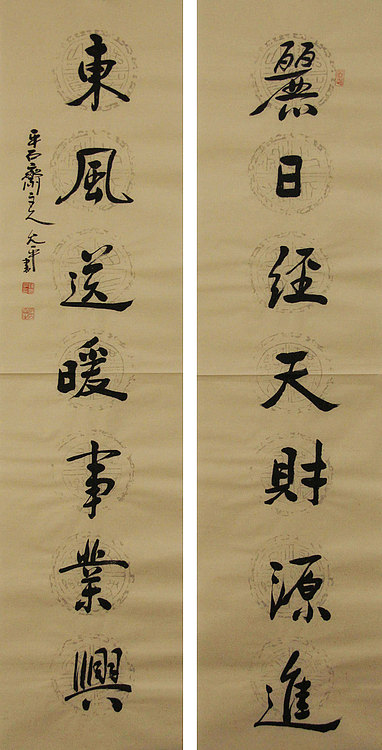 麗日經天財源進
東風送暖事業興
平石齋主人 允平書